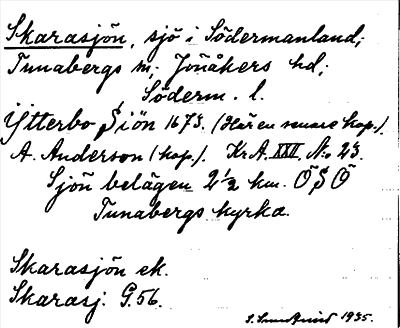 Skarasjön, sjö i Södermanland;
Tunabergs sn; Jönåkers hd;
Söderm. l.
Ytterbo Siön 1673. (Här en senare kop.).
A. Anderson (kop.). Kr.A. XXII. No 23.
Sjön belägen 2 1/2 km. Ö S Ö
Tunabergs kyrka.
Skarasjön ek.
Skarasj. G.56.
1935.